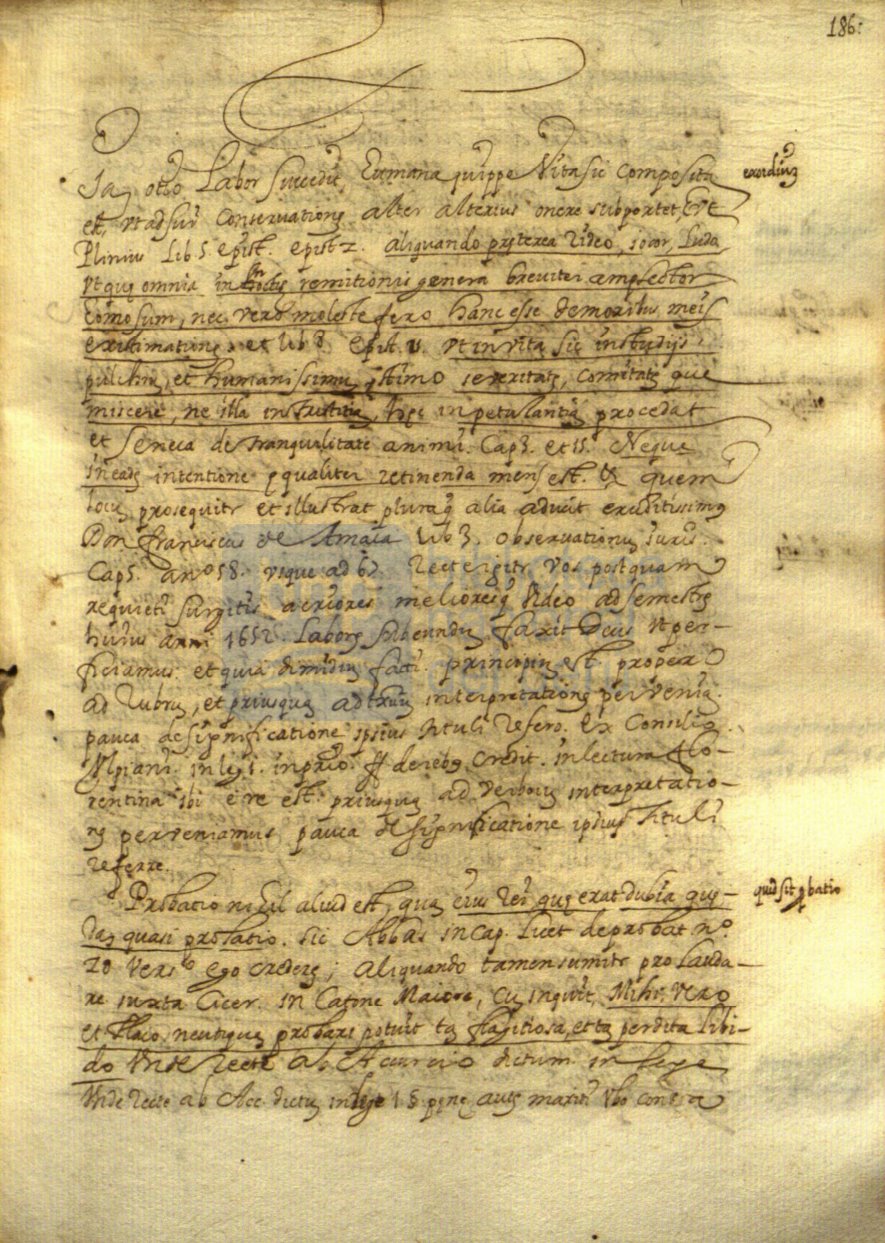 186:
Iaq otio Labor succedit, Eumana quippe Vita sic composita
exordiuz
est, vt ad sui Conservationẽ alter alterius onere subportet, Vt
Plinius Lib 5. epist. epist 2. aliquando pręterea rideo, iocor, Ludo
vtque omnia innoctis remitionis genera breviter amplectar
Eomo sum, nec vero moleste fero hanc esse demoribus meis
existimationẽ. et lib 8. epist. vt in vita sic in studijs
pulchrũ, et humanissimũ ęstimo severitatẽ, Comitatẽ que
miscere, ne illa in tristitiã, hęc in petulantiã procedat
et Seneca de tranquilitate animi. Cap 3. et 15. Neque
in eadẽ intentione ęqualiter retinenda mens est. quem
locũ prosequitr et illustrat pluraq alia aducit eruditissimꝰ
Don franciscus de Amaia Lib 3. observationũ iuris.
Cap 5. anº 58. vsque ad 62. Recte igitr Vos postquam
requieti surgitis acriores melioresq Video ad semestrẽ
huius anni 1652. Laborẽ subeundũ, faxit Deus vt per-
ficiamus. et quia dimidiũ facti principiũ est. propero
ad rubrũ, et priusquã ad textuũ interpretationẽ perveniã
pauca de significatione ipsius tituli refero. Ex Consilio
Vlpiani. in leg 1. in prio. ff de rebꝰ credit. in lectura flo-
rentina ibi e re est. priusquã ad verborũ interpretatio-
nẽ perveniamus pauca de significatione ipsius tituli
referre.
Probatio nihil aliud est, quã eius rei quę erat dubia quę-
quid sit pbatio
dã quasi probatio. sic Abbas in Cap. Licet de probat nº
20 vers ego crederẽ; aliquando tamen sumitr pro Lauda-
re iuxta Cicer. in Catone Maiore, Cũ inquit, Mihi vero
et flaco neutiquã probari potuit tã flagitiosa, et tã perdita libi-
do Vnde recte ab Accurcio dictum in lege
Vnde recte ab Acc. dictũ in lege 15 vbo contra